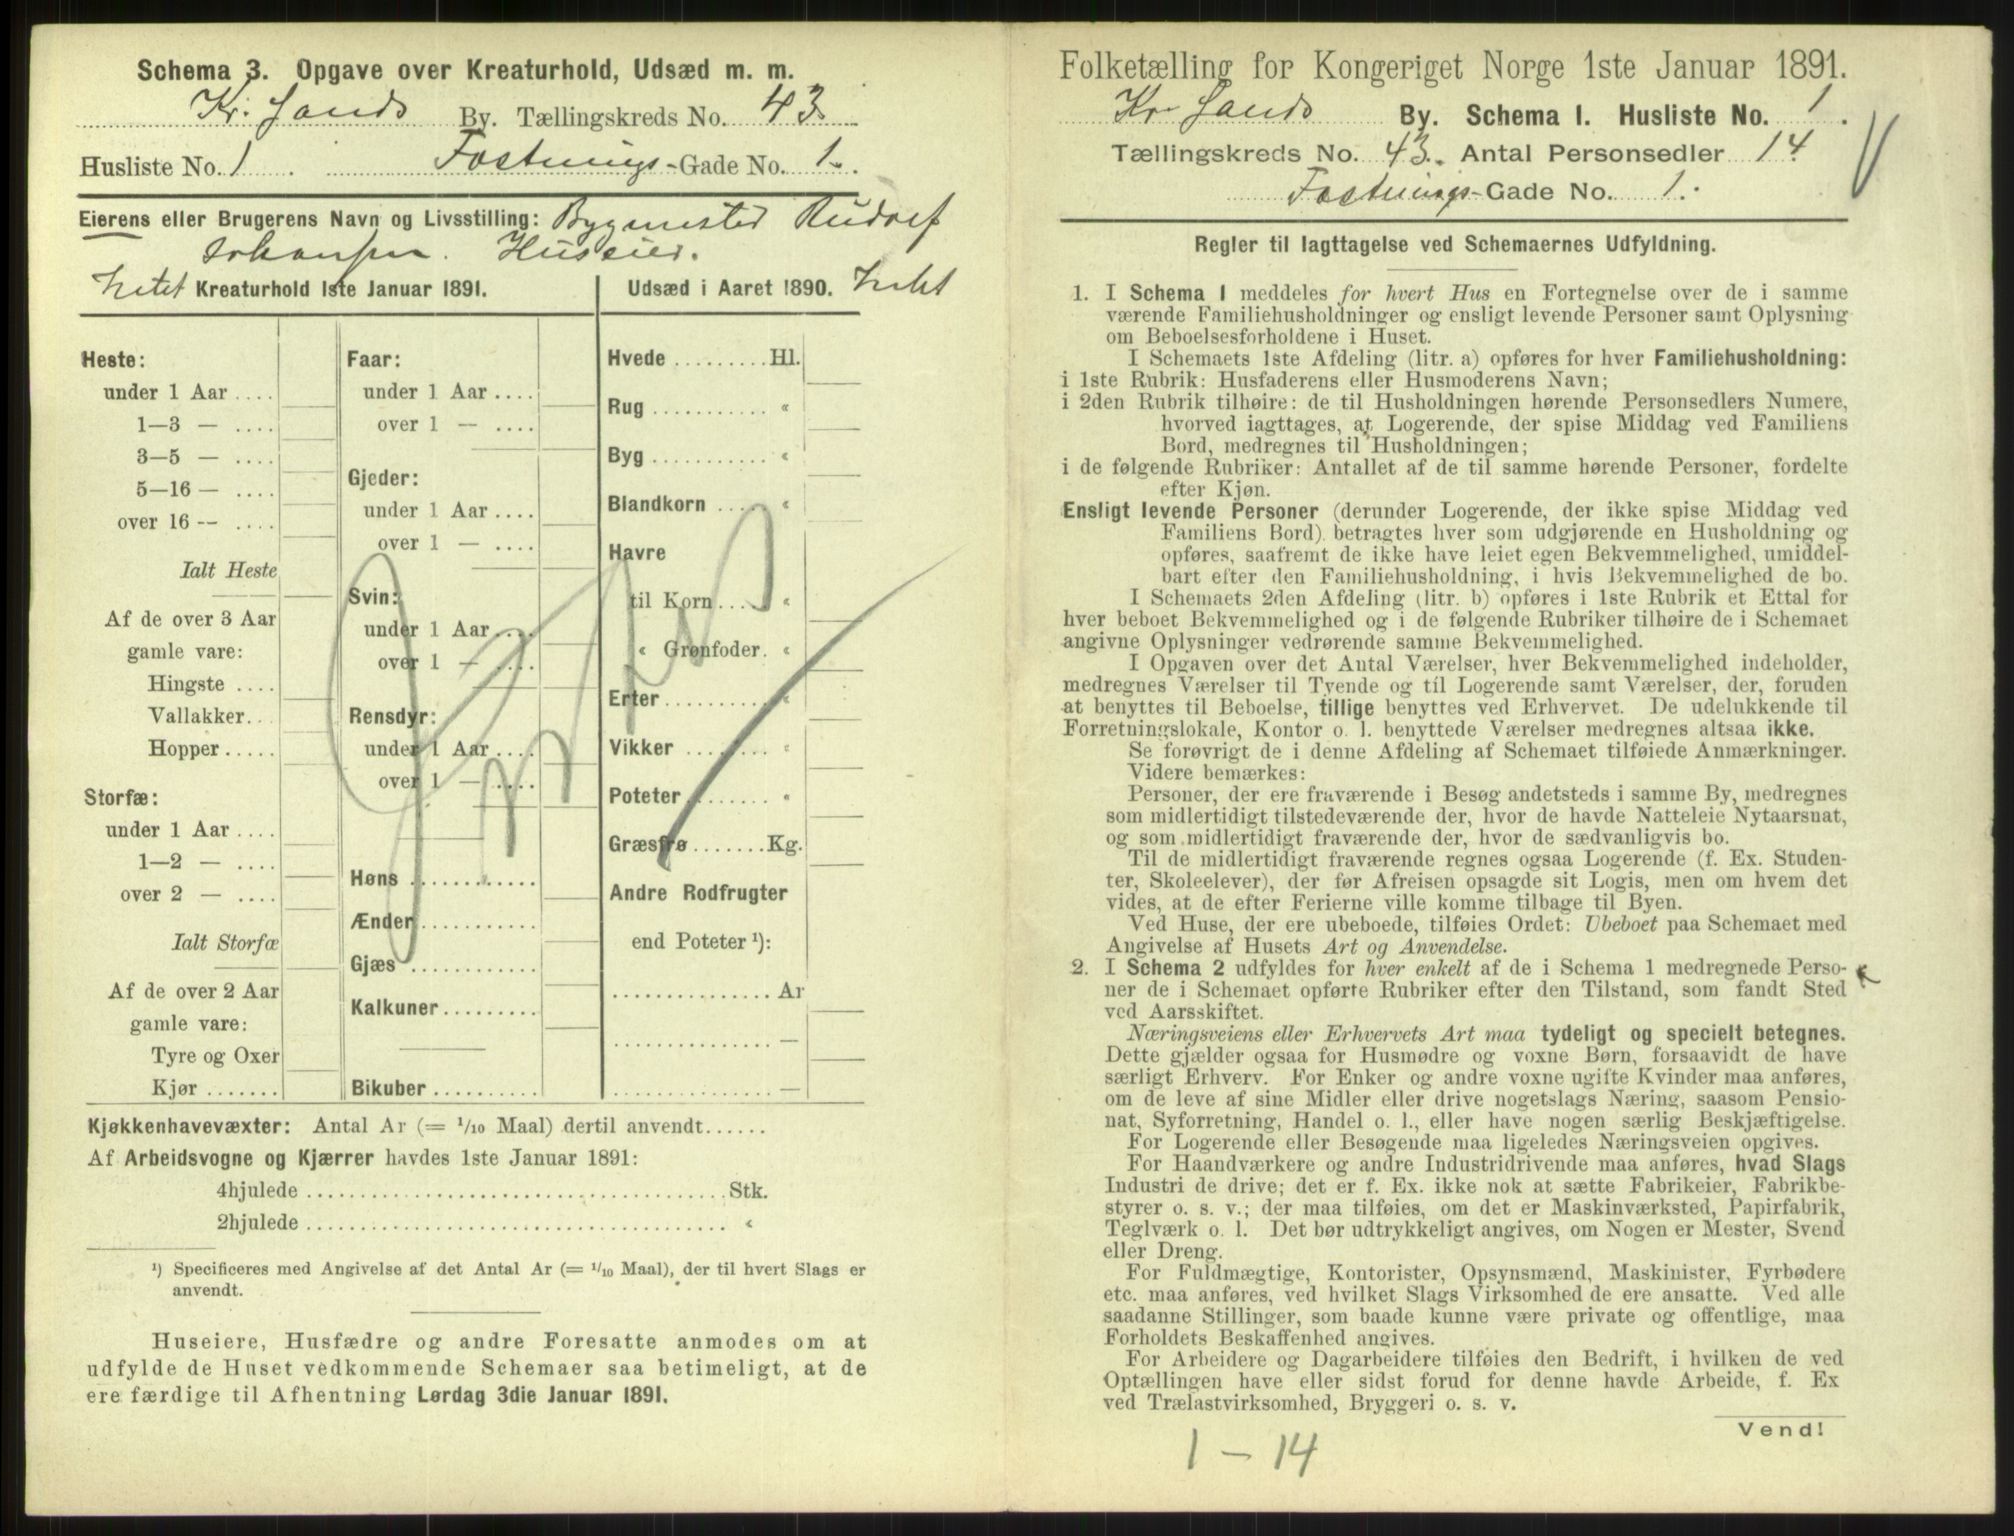 Schema 3. Opgave over Kreaturhold, Udsæd m. m.
Kr. sands By. Tællingskreds No. 43.
Husliste No. 1. Fæstnings-Gade No. 1.
Eierens eller Brugerens Navn og Livsstilling: Bygmester Rudolf
Johansen. Huseier.
Intet Kreaturhold 1ste Januar 1891.
Heste:
under 1 Aar ....
1—3 — ....
3—5 — ....
5—16 — ....
over 16 — ....
Ialt Heste
Af de over 3 Aar
gamle vare:
Hingste ....
Vallakker...
Hopper.....
Storfæ:
under 1 Aar ....
1—2 — ....
over 2 — ....
Ialt Storfæ
Af de over 2 Aar
gamle vare:
Tyre og Oxer
Kjør .......
Faar:
under 1 Aar ....
over 1 — ....
Gjeder:
under 1 Aar ....
over 1 — ....
Svin:
under 1 Aar ....
over 1 — ....
Rensdyr:
under 1 Aar ....
over 1 — ....
Høns ............
Ænder ...........
Gjæs ............
Kalkuner .........
Bikuber ..........
Udsæd i Aaret 1890. Intet
Hvede .........Hl.
Rug ........... «
Byg ........... «
Blandkorn ..... «
Havre
til Korn.... «
« Grønfoder. «
Erter ......... «
Vikker ........ «
Poteter ....... «
Græsfrø .......Kg.
Andre Rodfrugter
end Poteter ¹):
............... Ar
............... —
............... —
Kjøkkenhavevæxter: Antal Ar (= 1/10 Maal) dertil anvendt......
Af Arbeidsvogne og Kjærrer havdes 1ste Januar 1891:
4hjulede ........................................Stk.
2hjulede ........................................ «
¹) Specificeres med Angivelse af det Antal Ar (= 1/10 Maal), der til hvert Slags er
anvendt.
Huseiere, Husfædre og andre Foresatte anmodes om at
udfylde de Huset vedkommende Schemaer saa betimeligt, at de
ere færdige til Afhentning Lørdag 3die Januar 1891.
Folketælling for Kongeriget Norge 1ste Januar 1891.
Kr sands By. Schema I. Husliste No. 1.
Tællingskreds No. 43. Antal Personsedler 14
Fæstnings-Gade No. 1.
Regler til Iagttagelse ved Schemaernes Udfyldning.
1. I Schema 1 meddeles for hvert Hus en Fortegnelse over de i samme
værende Familiehusholdninger og ensligt levende Personer samt Oplysning
om Beboelsesforholdene i Huset.
I Schemaets 1ste Afdeling (litr. a) opføres for hver Familiehusholdning:
i 1ste Rubrik: Husfaderens eller Husmoderens Navn;
i 2den Rubrik tilhøire: de til Husholdningen hørende Personsedlers Numere,
hvorved iagttages, at Logerende, der spise Middag ved Familiens
Bord, medregnes til Husholdningen;
i de følgende Rubriker: Antallet af de til samme hørende Personer, fordelte
efter Kjøn.
Ensligt levende Personer (derunder Logerende, der ikke spise Middag ved
Familiens Bord) betragtes hver som udgjørende en Husholdning og
opføres, saafremt de ikke have leiet egen Bekvemmelighed, umiddel-
bart efter den Familiehusholdning, i hvis Bekvemmelighed de bo.
I Schemaets 2den Afdeling (litr. b) opføres i 1ste Rubrik et Ettal for
hver beboet Bekvemmelighed og i de følgende Rubriker tilhøire de i Schemaet
angivne Oplysninger vedrørende samme Bekvemmelighed.
I Opgaven over det Antal Værelser, hver Bekvemmelighed indeholder,
medregnes Værelser til Tyende og til Logerende samt Værelser, der, foruden
at benyttes til Beboelse, tillige benyttes ved Erhvervet. De udelukkende til
Forretningslokale, Kontor o. l. benyttede Værelser medregnes altsaa ikke.
Se forøvrigt de i denne Afdeling af Schemaet tilføiede Anmærkninger.
Videre bemærkes:
Personer, der ere fraværende i Besøg andetsteds i samme By, medregnes
som midlertidigt tilstedeværende der, hvor de havde Natteleie Nytaarsnat,
og som midlertidigt fraværende der, hvor de sædvanligvis bo.
Til de midlertidigt fraværende regnes ogsaa Logerende (f. Ex. Studen-
ter, Skoleelever), der før Afreisen opsagde sit Logis, men om hvem det
vides, at de efter Ferierne ville komme tilbage til Byen.
Ved Huse, der ere ubeboede, tilføies Ordet: Ubeboet paa Schemaet med
Angivelse af Husets Art og Anvendelse.
2. I Schema 2 udfyldes for hver enkelt af de i Schema 1 medregnede Perso-
ner de i Schemaet opførte Rubriker efter den Tilstand, som fandt Sted
ved Aarsskiftet.
Næringsveiens eller Erhvervets Art maa tydeligt og specielt betegnes.
Dette gjælder ogsaa for Husmødre og voxne Børn, forsaavidt de have
særligt Erhverv. For Enker og andre voxne ugifte Kvinder maa anføres,
om de leve af sine Midler eller drive nogetslags Næring, saasom Pensio-
nat, Syforretning, Handel o. l., eller have nogen særlig Beskjæftigelse.
For Logerende eller Besøgende maa ligeledes Næringsveien opgives.
For Haandværkere og andre Industridrivende maa anføres, hvad Slags
Industri de drive; det er f. Ex. ikke nok at sætte Fabrikeier, Fabrikbe-
styrer o. s. v.; der maa tilføies, om det er Maskinværksted, Papirfabrik,
Teglværk o. l. Det bør udtrykkeligt angives, om Nogen er Mester, Svend
eller Dreng.
For Fuldmægtige, Kontorister, Opsynsmænd, Maskinister, Fyrbødere
etc. maa anføres, ved hvilket Slags Virksomhed de ere ansatte. Ved alle
saadanne Stillinger, som baade kunne være private og offentlige, maa
Forholdets Beskaffenhed angives.
For Arbeidere og Dagarbeidere tilføies den Bedrift, i hvilken de ved
Optællingen have eller sidst forud for denne havde Arbeide, f. Ex
ved Trælastvirksomhed, Bryggeri o. s. v.
Vend!
1 — 14